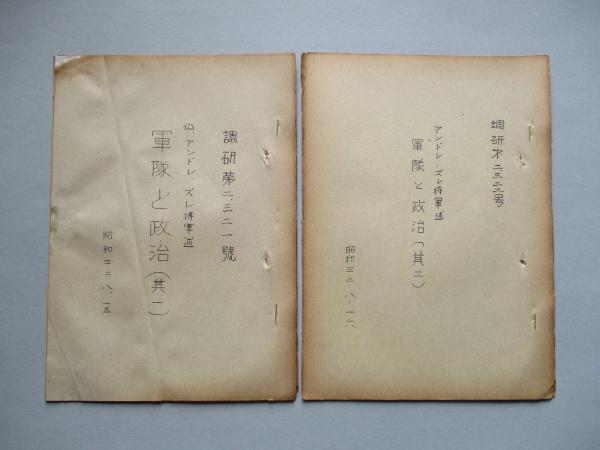 調研第二、三二一號
仏、アンドレ・ズレ将軍述
軍隊と政治(其一)
昭和三二、八、一五
調研才二三二二号
アンドレ・ズレ将軍述
軍隊と政治(其二)
昭和三二・八・一六